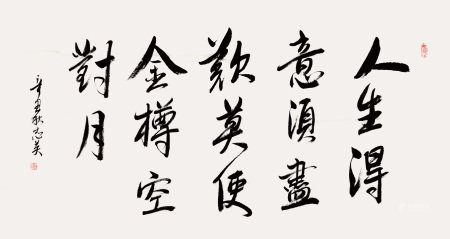 人生得
意須盡
歡莫使
金樽空
對月
辛丑秋志英